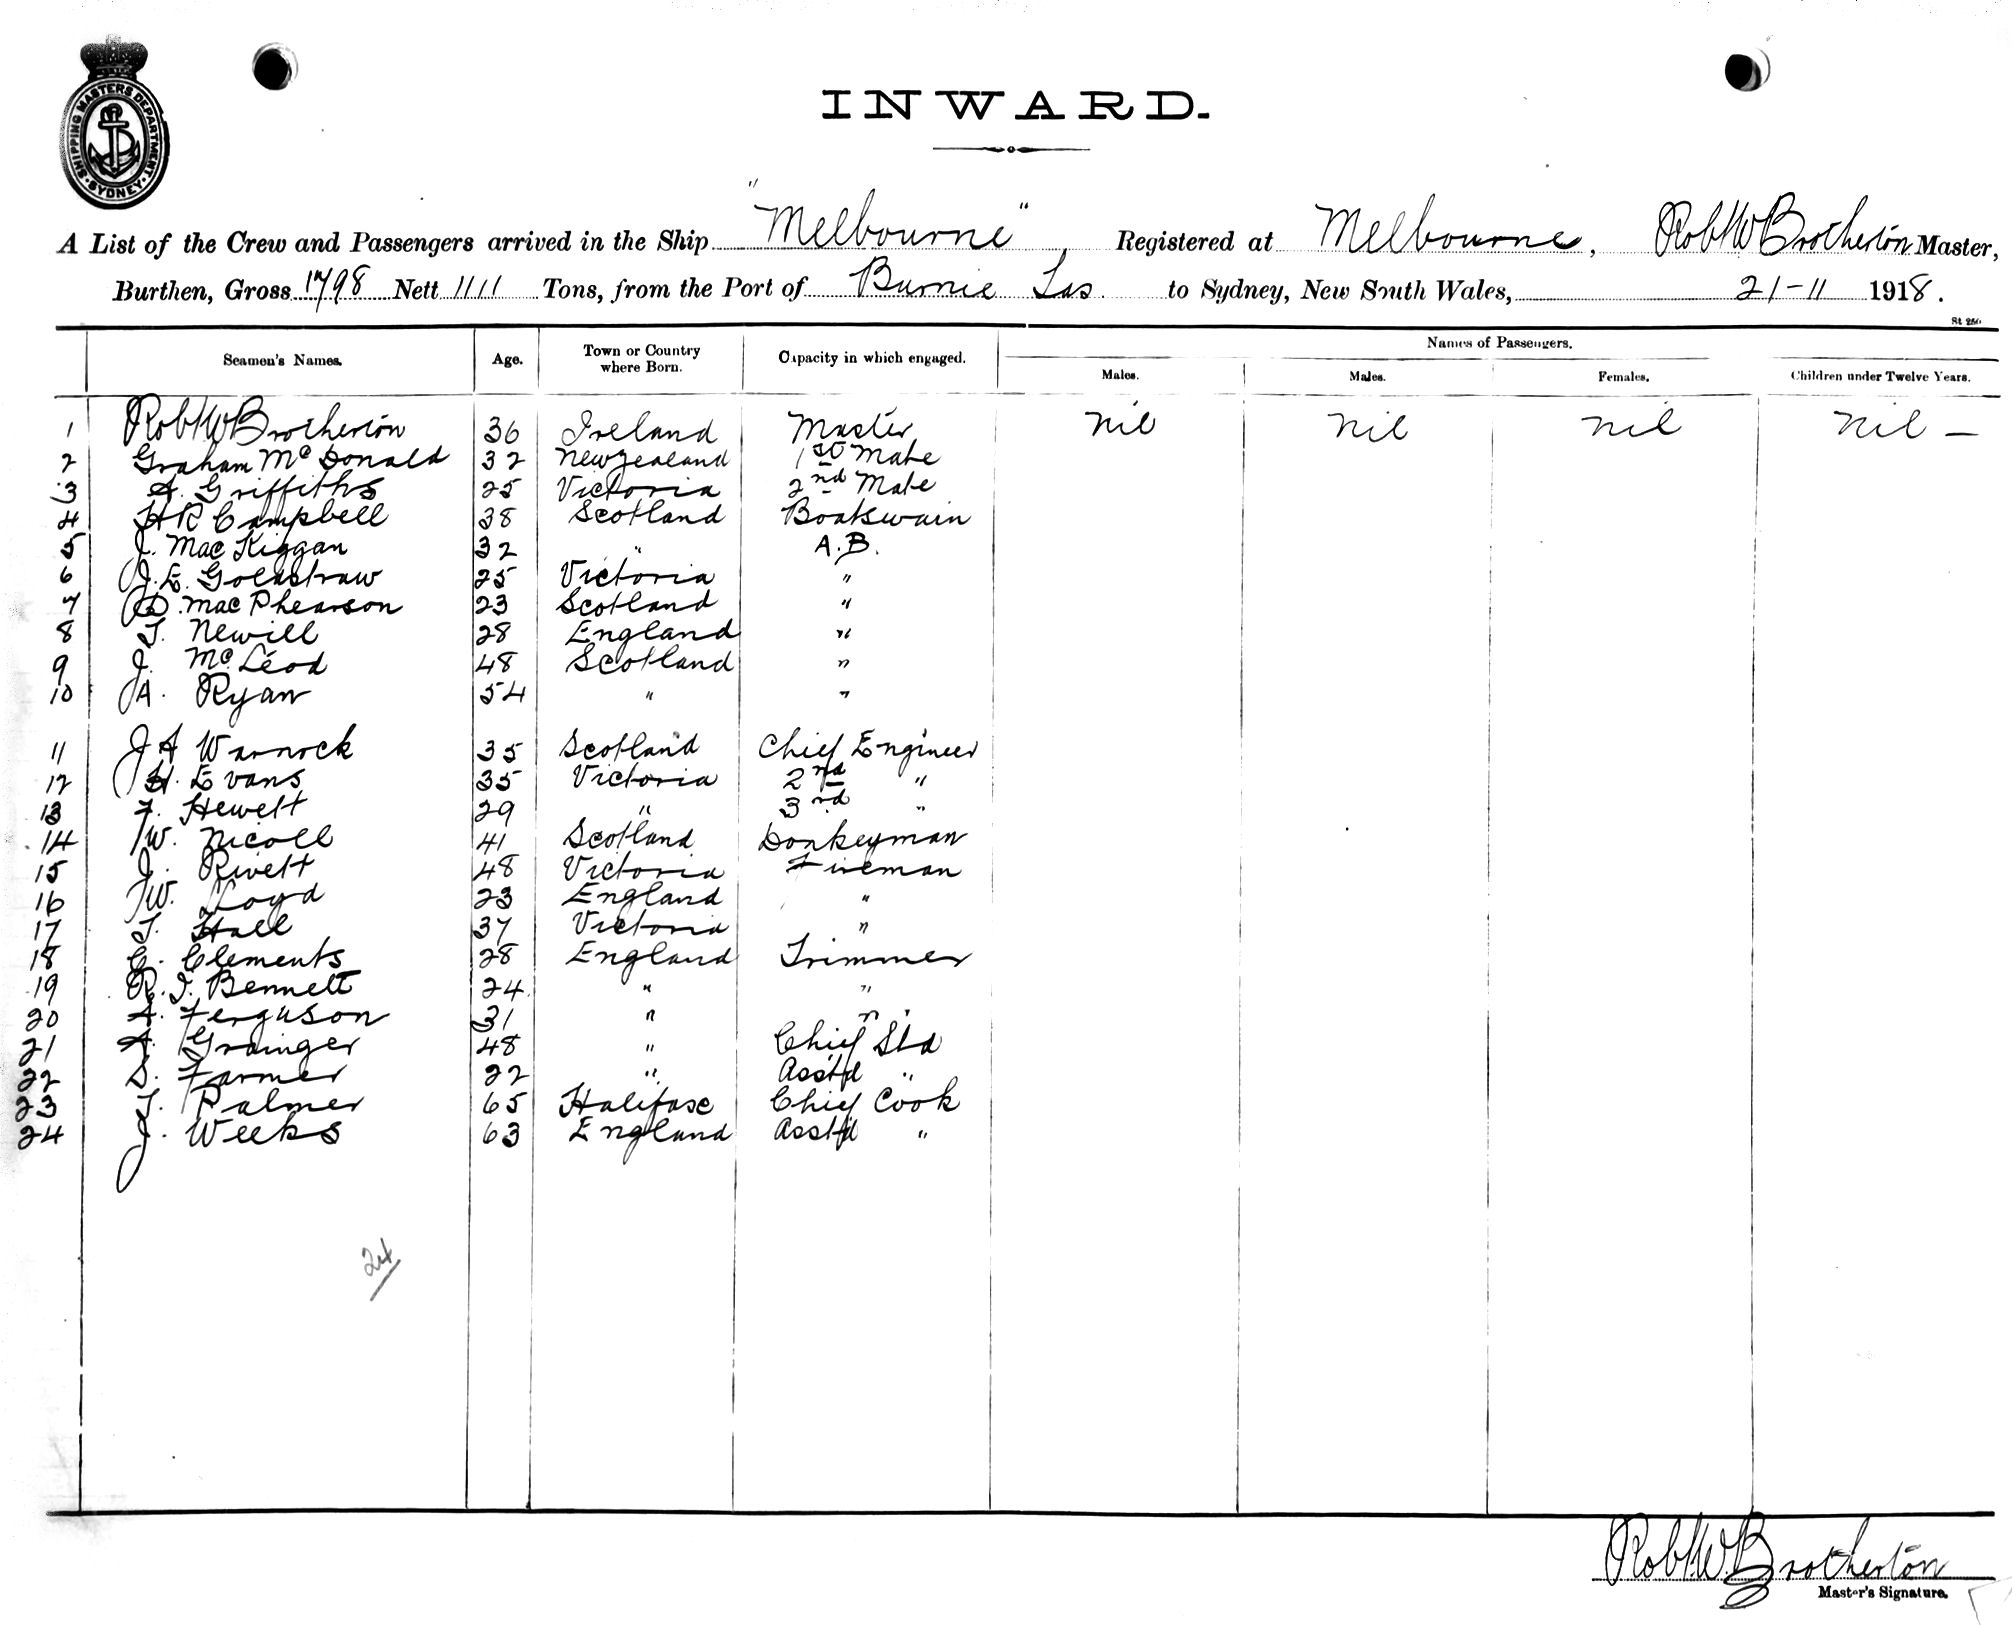 SHIPPING MASTERS DEPARTMENT · SYDNEY ·
INWARD.
A List of the Crew and Passengers arrived in the Ship "Melbourne" Registered at Melbourne, Robt W Brotherton Master,
Burthen, Gross 1798 Nett 1111 Tons, from the Port of Burnie Tas. to Sydney, New South Wales, 21-11 1918.
St 250
Seamen's Names. Age. Town or Country where Born. Capacity in which engaged. Names of Passengers.
Males. Males. Females. Children under Twelve Years.
1 Robt W Brotherton 36 Ireland Master Nil Nil Nil Nil —
2 Graham Mc Donald 32 New Zealand 1st Mate
3 A. Griffiths 25 Victoria 2nd Mate
4 H R Campbell 38 Scotland Boatswain
5 J. Mac Kiggan 32 " A.B.
6 J. E. Goldstraw 25 Victoria "
7 D. Mac Phearson 23 Scotland "
8 T. Newill 28 England "
9 J. Mc Leod 48 Scotland "
10 A. Ryan 54 " "
11 J A Warnock 35 Scotland Chief Engineer
12 H. Evans 35 Victoria 2nd "
13 F. Hewett 29 " 3rd "
14 W. Nicoll 41 Scotland Donkeyman
15 J. Rivett 48 Victoria Fireman
16 W. Lloyd 23 England "
17 T. Hall 37 Victoria "
18 C. Clements 28 England Trimmer
19 R. J. Bennett 24 " "
20 A. Ferguson 31 " "
21 A. Grainger 48 " Chief Std
22 S. Farmer 22 " Asstd "
23 T. Palmer 65 Halifax Chief Cook
24 J. Weeks 63 England Asstd "
24
Robt. W. Brotherton
Master's Signature.